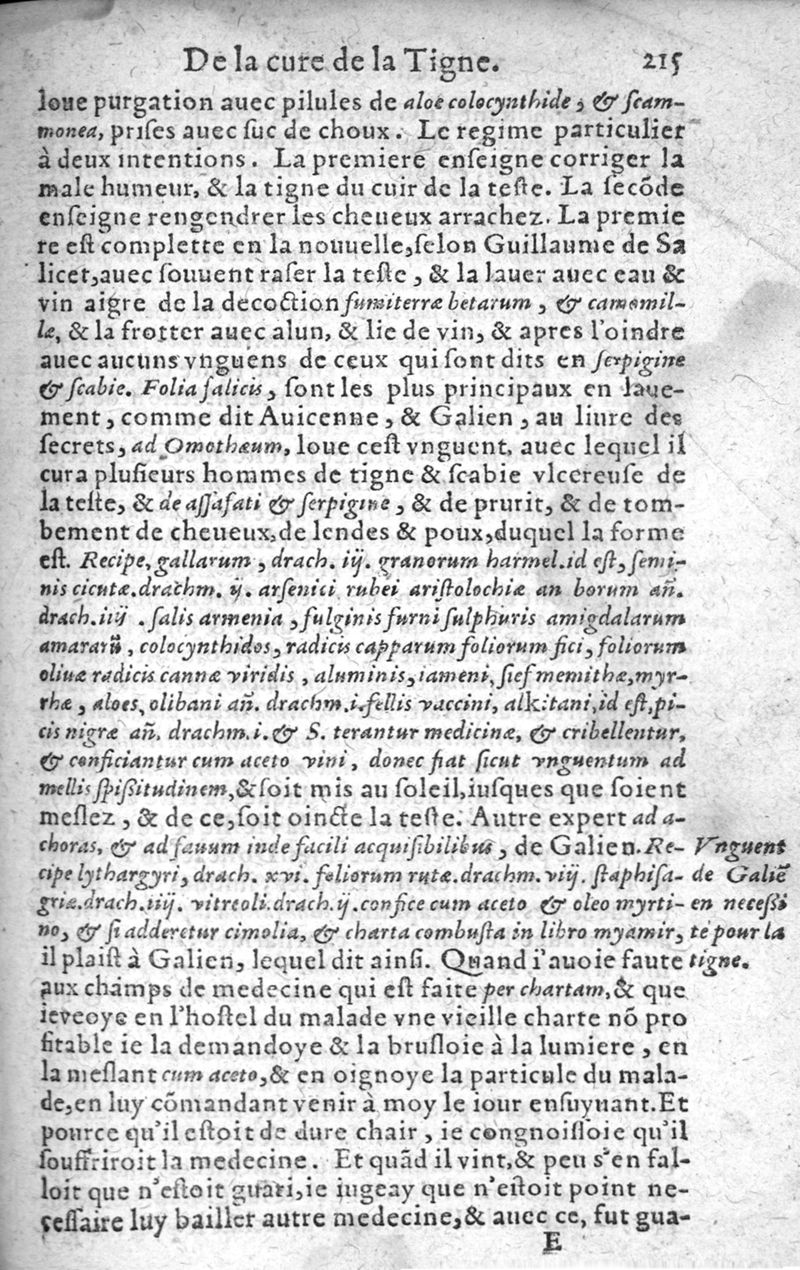 De la cure de la Tigne. 215
loue purgation auec pilules de aloe colocynthide, & ſcam-
monea, priſes auec ſuc de choux. Le regime particulier
à deux intentions. La premiere enſeigne corriger la
male humeur, & la tigne du cuir de la teſte. La ſecõde
enſeigne rengendrer les cheueux arrachez. La premie
re eſt complette en la nouuelle, ſelon Guillaume de Sa
licet, auec ſouuent raſer la teſte, & la lauer auec eau &
vin aigre de la decoction fumiterræ betarum, & camomil-
læ, & la frotter auec alun, & lie de vin, & apres l'oindre
auec aucuns vnguens de ceux qui ſont dits en ſerpigine
& ſcabie. Folia ſalicis, ſont les plus principaux en laue-
ment, comme dit Auicenne, & Galien, au liure des
ſecrets, ad Omothæum, loue ceſt vnguent, auec lequel il
cura pluſieurs hommes de tigne & ſcabie vlcereuſe de
la teſte, & de aſſafati & ſerpigine, & de prurit, & de tom-
bement de cheueux, de lendes & poux, duquel la forme
eſt. Recipe, gallarum, drach. iij. granorum harmel. id eſt, ſemi-
nis cicutæ. drachm. ij. arſenici rubei ariſtolochiæ an borum añ.
drach. iiij. ſalis armenia, fulginis furni ſulphuris amigdalarum
amararũ, colocynthidos, radicis capparum foliorum fici, foliorum
oliuæ radicis cannæ viridis, aluminis, iameni, ſief memithæ, myr-
rhæ, aloes, olibani añ. drachm. i. fellis vaccini, alkitani, id eſt, pi-
cis nigræ añ. drachm. i. & S. terantur medicinæ, & cribellentur,
& conficiantur cum aceto vini, donec fiat ſicut vnguentum ad
mellis ſpißitudinem, & ſoit mis au ſoleil, iuſques que ſoient
meſlez, & de ce, ſoit oincte la teſte. Autre expert ad a-
choras, & ad fauum inde facili acquiſibilibus, de Galien. Re-
cipe lythargyri, drach. xvi. foliorum rutæ. drachm. viij. ſtaphiſa-
griæ. drach. iiij. vitreoli. drach. ij. confice cum aceto & oleo myrti-
no, & ſi adderetur cimolia, & charta combuſta in libro myamir,
il plaiſt à Galien, lequel dit ainſi. Quand i'auoie faute
aux champs de medecine qui eſt faite per chartam, & que
ieveoye en l'hoſtel du malade vne vieille charte nõ pro
fitable ie la demandoye & la bruſloie à la lumiere, en
la meſlant cum aceto, & en oignoye la particule du mala-
de, en luy cõmandant venir à moy le iour enſuyuant. Et
pource qu'il eſtoit de dure chair, ie congnoiſſoie qu'il
ſouffriroit la medecine. Et quãd il vint, & peu s'en fal-
loit que n'eſtoit guari, ie iugeay que n'eſtoit point ne-
ceſſaire luy bailler autre medecine, & auec ce, fut gua-
E
Vnguent
de Galiẽ
en neceſſi
té pour la
tigne.